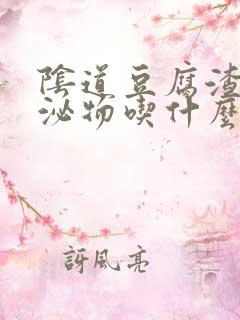 陰道豆腐渣
泌物喫什麼
訝風亮